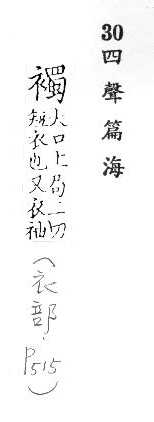 30四聲篇海
襡大口上局二切
短衣也又衣袖
(衣部,P515)